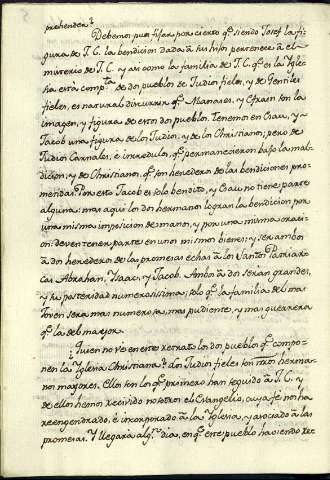 prehender?
Debemos pues fixar por cierto qe siendo Josef la fi-
gura de J. C. la bendicion dada à sus hijos pertenece à el
misterio de J. C. y asi como la familia de J. C. qe es la Ygle-
sia está compta de dos pueblos de Judios fieles, y de Gentiles
fieles, es natural discurrir qe Manases, y Efrain son la
imagen, y figura de estos dos pueblos. Tenemos en Esau, y
Jacob una figura de los Judios, y de los Christianos; pero de
Judios carnales, è incredulos, qe permanecieron bajo la mal-
dicion, y de Christianos qe son herederos de las bendiciones pro-
metidas. Por esto Jacob es solo bendito, y Esau no tiene parte
alguna: mas aqui los dos hermanos logran la bendicion por
una misma imposicion de manos, y por una misma oraci-
on: deven tener parte en unos mismos bienes; y ser ambos
à dos herederos de las promesas echas à los Santos Patriar-
cas Abrahan, Ysaac, y Jacob. Ambos à dos seran grandes,
y su posteridad numerosissima; solo qe la familia del mas
joven sera mas numerosa, mas pudiente, y mas guerrera
qe la del mayor.
¿Quien no ve en este retrato los dos pueblos qe compo-
nen la Yglesia Christiana? Los Judios fieles son ntros herma-
nos mayores. Ellos son los qe primero han seguido à J. C. y
de ellos hemos recivido nosotros el Evangelio, cuya fe nos ha
reengendrado, è incorporado à la Yglesia, y asociado à las
promesas. Y llegara algn dia, en qe este pueblo haviendo xre